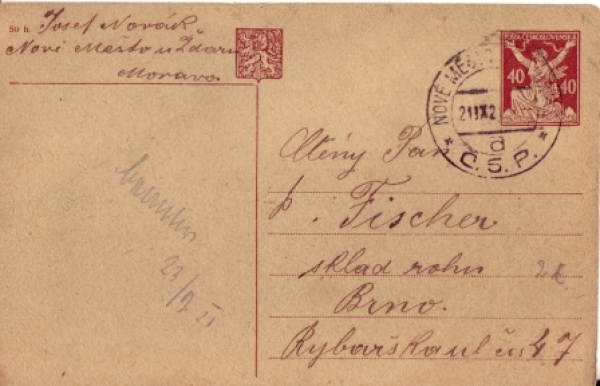 50 h.
Josef Novák
Nové Město u Ždaru
Morava
POŠTA ČESKOSLOVENSKÁ
40 40
NOVÉ MĚS
21 IX 2
a
* Č. S. P. *
Ctěný Pan
p. Fischer
sklad rohu
Brno.
Rybařská ul čís 47
23/9 21